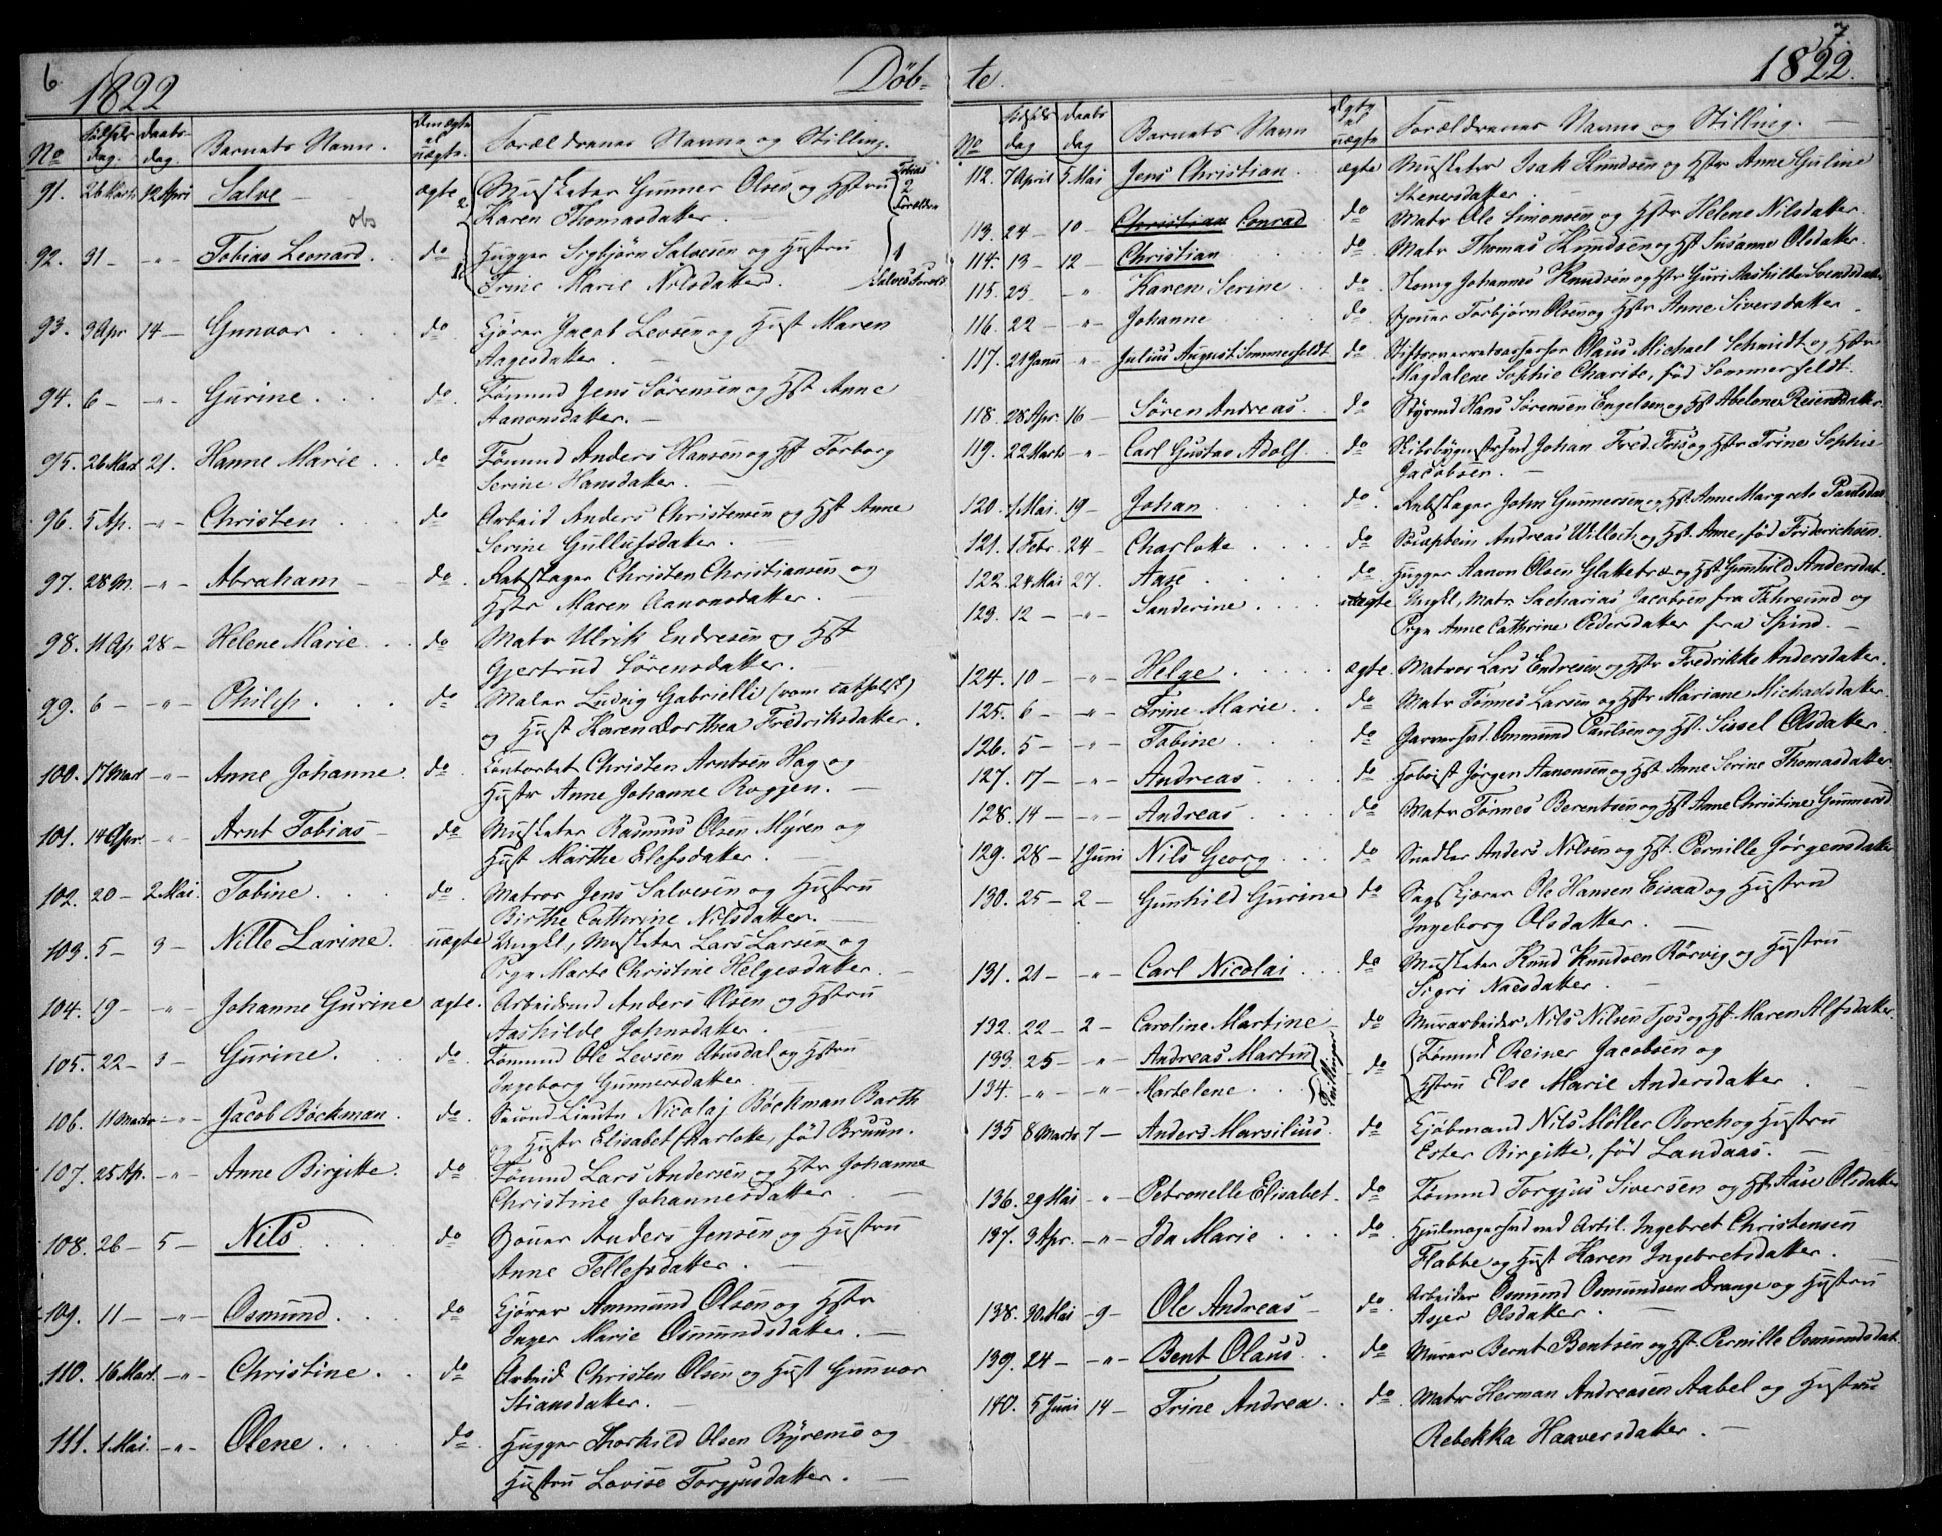 6
1822
Döb-
No
Fødsels
dag.
Daabs-
dag.
Barnets Navn.
Om ægte
el
uægte.
Forældrenes Navne og Stilling.
91. 26 Marts 12 April Salve ægte Musketer Gunner Olsen og Hstru
Karen Thomasdatter.
Tobias
2
Forældre
obs
92. 31 - - " - Tobias Leonard. do Hugger Sigbjörn Salvesen og Hustru
Trine Marie Nilsdatter.
1
Salves Foreld
93. 3 Apr 14 - Gunvor do Kjörer Jacob Levsen og Hust Maren
Aagesdatter.
94. 6 - - " - Gurine. do. Tömmd Jens Sörensen og Hst Anne
Aanonsdatter. -
95. 26 Mart 21. Hanne Marie. do Tömmd Anders Hansen og Hst Torborg
Serine Hansdatter.
96. 5 Ap. - " - Christen do Arbeid Anders Christensen og Hst Anne
Serine Gullufsdatter.
97. 28 M. - " - Abraham do. Rebslager Christen Christiansen og
Hstr Maren Aanonsdatter. -
98. 11 Ap 28 - Helene Marie. do Matr Ulrik Endresen og Hst
Gjertrud Sörensdatter.
99. 6 - - " - Philip. do Maler Ludvig Gabrielli (rom catholsk)
og Hust Karen Dorthea Fredriksdatter.
100. 17 Mart - " - Anne Johanne do. Contorbet Christen Arntsen Hag og
Hustr Anne Johanne Roggen. -
101. 14 Apr. - " - Arnt Tobias - do Musketer Rasmus Olsen Myren og
Hust Marthe Elefsdatter.
102. 20 - 2 Mai. Tobine. do. Matros Jens Salvesen og Hustru
Birthe Cathrine Nilsdatter. -
103. 5 - 3 - Nille Larine. uægte Ungkl, Musketer Lars Larsen og
Pige Marte Christine Helgesdatter. -
104. 19 - - " - Johanne Gurine ægte. Arbeidsmd Anders Olsen og Hstru
Aashilde Johnsdatter.
105. 22 - 3 - Gurine. do. Tömmd Ole Levsen Abusdal og Hstru
Ingeborg Gunnersdatter.
106. 11 Marts - " - Jacob Böckman. do. Second Lieutn Nicolaj Böckman Barth
og Hustr Elisabet Charlotte, född Bruun.
107. 25 Ap. - " - Anne Birgitte. do Tömmd Lars Andersen og Hstr Johanne
Christine Johannesdatter -
108. 26 - 5 - Nils do Anders Jensen og Hustru
Anne Tellefsdatter.
109. 11 - - " - Osmund. do Kjörer Ammund Olsen og Hstr
Inger Marie Osmundsdatter. -
110. 16 Mart. - " - Christine. do Arbeid Christen Olsen og Hust Gunvor
Stiansdatter. -
111. 1 Mai. - " - Olene. do. Hugger Thorkild Olsen Byremo og
Hustru Lovise Torgjusdatter. -
7.
te.
1822.
No
Fødsels
dag
Daabs
dag
Barnets Navn
ægte
el
uægte
Forældrenes Navne og Stilling. -
112. 7 April 5 Mai Jens Christian. ægte Musketer Isak Knudsen og Hstr Anne Guline
Stenersdatter.
113. 24 - 10 - Christian Conrad do Matr Ole Simonsen og Hstr Helene Nilsdatter.
114. 13 - 12 - Christian do Matr Thomas Knudsen og Hst Susanne Olsdatter.
115. 23 - " - Karen Serine do. Johannes Knudsen og Hstr Guri Aashilde Svendsdatter
116. 22 - - " - Johanne do. Torbjörn Olsen og Hstr Anne Siversdatter
117. 21 Janu - " - Julius August Sommerfeldt do. Stiftsoverretsassessor Olaus Michael Schmidt og Hstr
Magdalene Sophie Charite, född Sommerfeldt.
118. 28 Apr. 16 Sören Andreas. do. Styrmd Hans Sörensen Engelsen og Hst Abelone Reiersdatter.
119. 22 Marts - " - Carl Gustav Adolf. do. Johan Fred. Friis og Hstr Trine Sophie
Jacobsen. -
120. 1 Mai. 19 - Johan do. Rebslager John Gunnersen og Hst Anne Margrete Paulsdat
121. 1 Febr. 24 - Charlotte do Andreas Willoch og Hst. Anne, född Friderichsen.
122. 24 Mai 27. Aase do Hugger Aanon Olsen Glattetre og Hst Gunhild Andersdat.
123. 12 - - " - Sanderine. uægte Ungkl, Matr. Sacharias Jacobsen fra Fahrsund og
Pige Anne Cathrine Pedersdatter fra Spind. -
124. 10 - - " - Helge ægte. Matros Lars Endresen og Hstr Fredrikke Andersdatter.
125. 6 - - " - Trine Marie. do Matr Tönnes Larsen og Hstr Mariane Michaelsdatter.
126. 5 - - " - Tobine do Garversvd. Ommund Paulsen og Hst. Sissel Olsdatter
127. 17 - - " - Andreas do Hoboist Jörgen Aanonsen og Hst Anne Serine Thomasdatter
128. 14 - - " - Andreas do Matr Tönnes Berentsen og Hst Anne Christine Gunnersd
129. 28 - 1 Juni Nils Georg do Snedker Anders Nilsen og Hst. Pernille Jörgensdatter
130. 25 - 2 - Gunhild Gurine do Sagskjærer Ole Hansen Eisaa og Hustru
Ingeborg Olsdatter.
131. 21 - - " - Carl Nicolai do Musketer Knud Knudsen Rörvig og Hustru
Sigri Naesdatter. -
132. 22 - 2 - Caroline Martine do Murarbeider Nils Nilsen Tjos og Hst. Maren Alfsdatter.
133. 25 - " - Andreas Martin do Tömmd Reiner Jacobsen og
134. - " - - " - Martelene Hstru Else Marie Andersdatter.
Tvillinger
135 8 Marts 7 - Anders Marsilius. do Kjöbmand Nils Möller Borch og Hustru
Ester Birgitte, född Landaas. -
136. 29 Mai - " - Petronelle Elisabet. do. Tömmd Torgjus Siversen og Hst Aase Olsdatter
137. 3 Apr. - " - Ida Marie do. Hjulmagersvd ved Artil. Ingebret Christensen
Flabbe og Hust Karen Ingebretsdatter.
138. 30 Mai - 9 - Ole Andreas - do. Arbeider Osmund Osmundsen Drange og Hustru
Asjer Olsdatter.
139. 24 - - " - Bent Olaus do Murer Bernt Bentsen og Hst. Pernille Osmundsdat
140. 5 Juni 14 - Trine Andrea. do. Matr Herman Andreasen Aabel og Hustru
Rebekka Haaversdatter. -